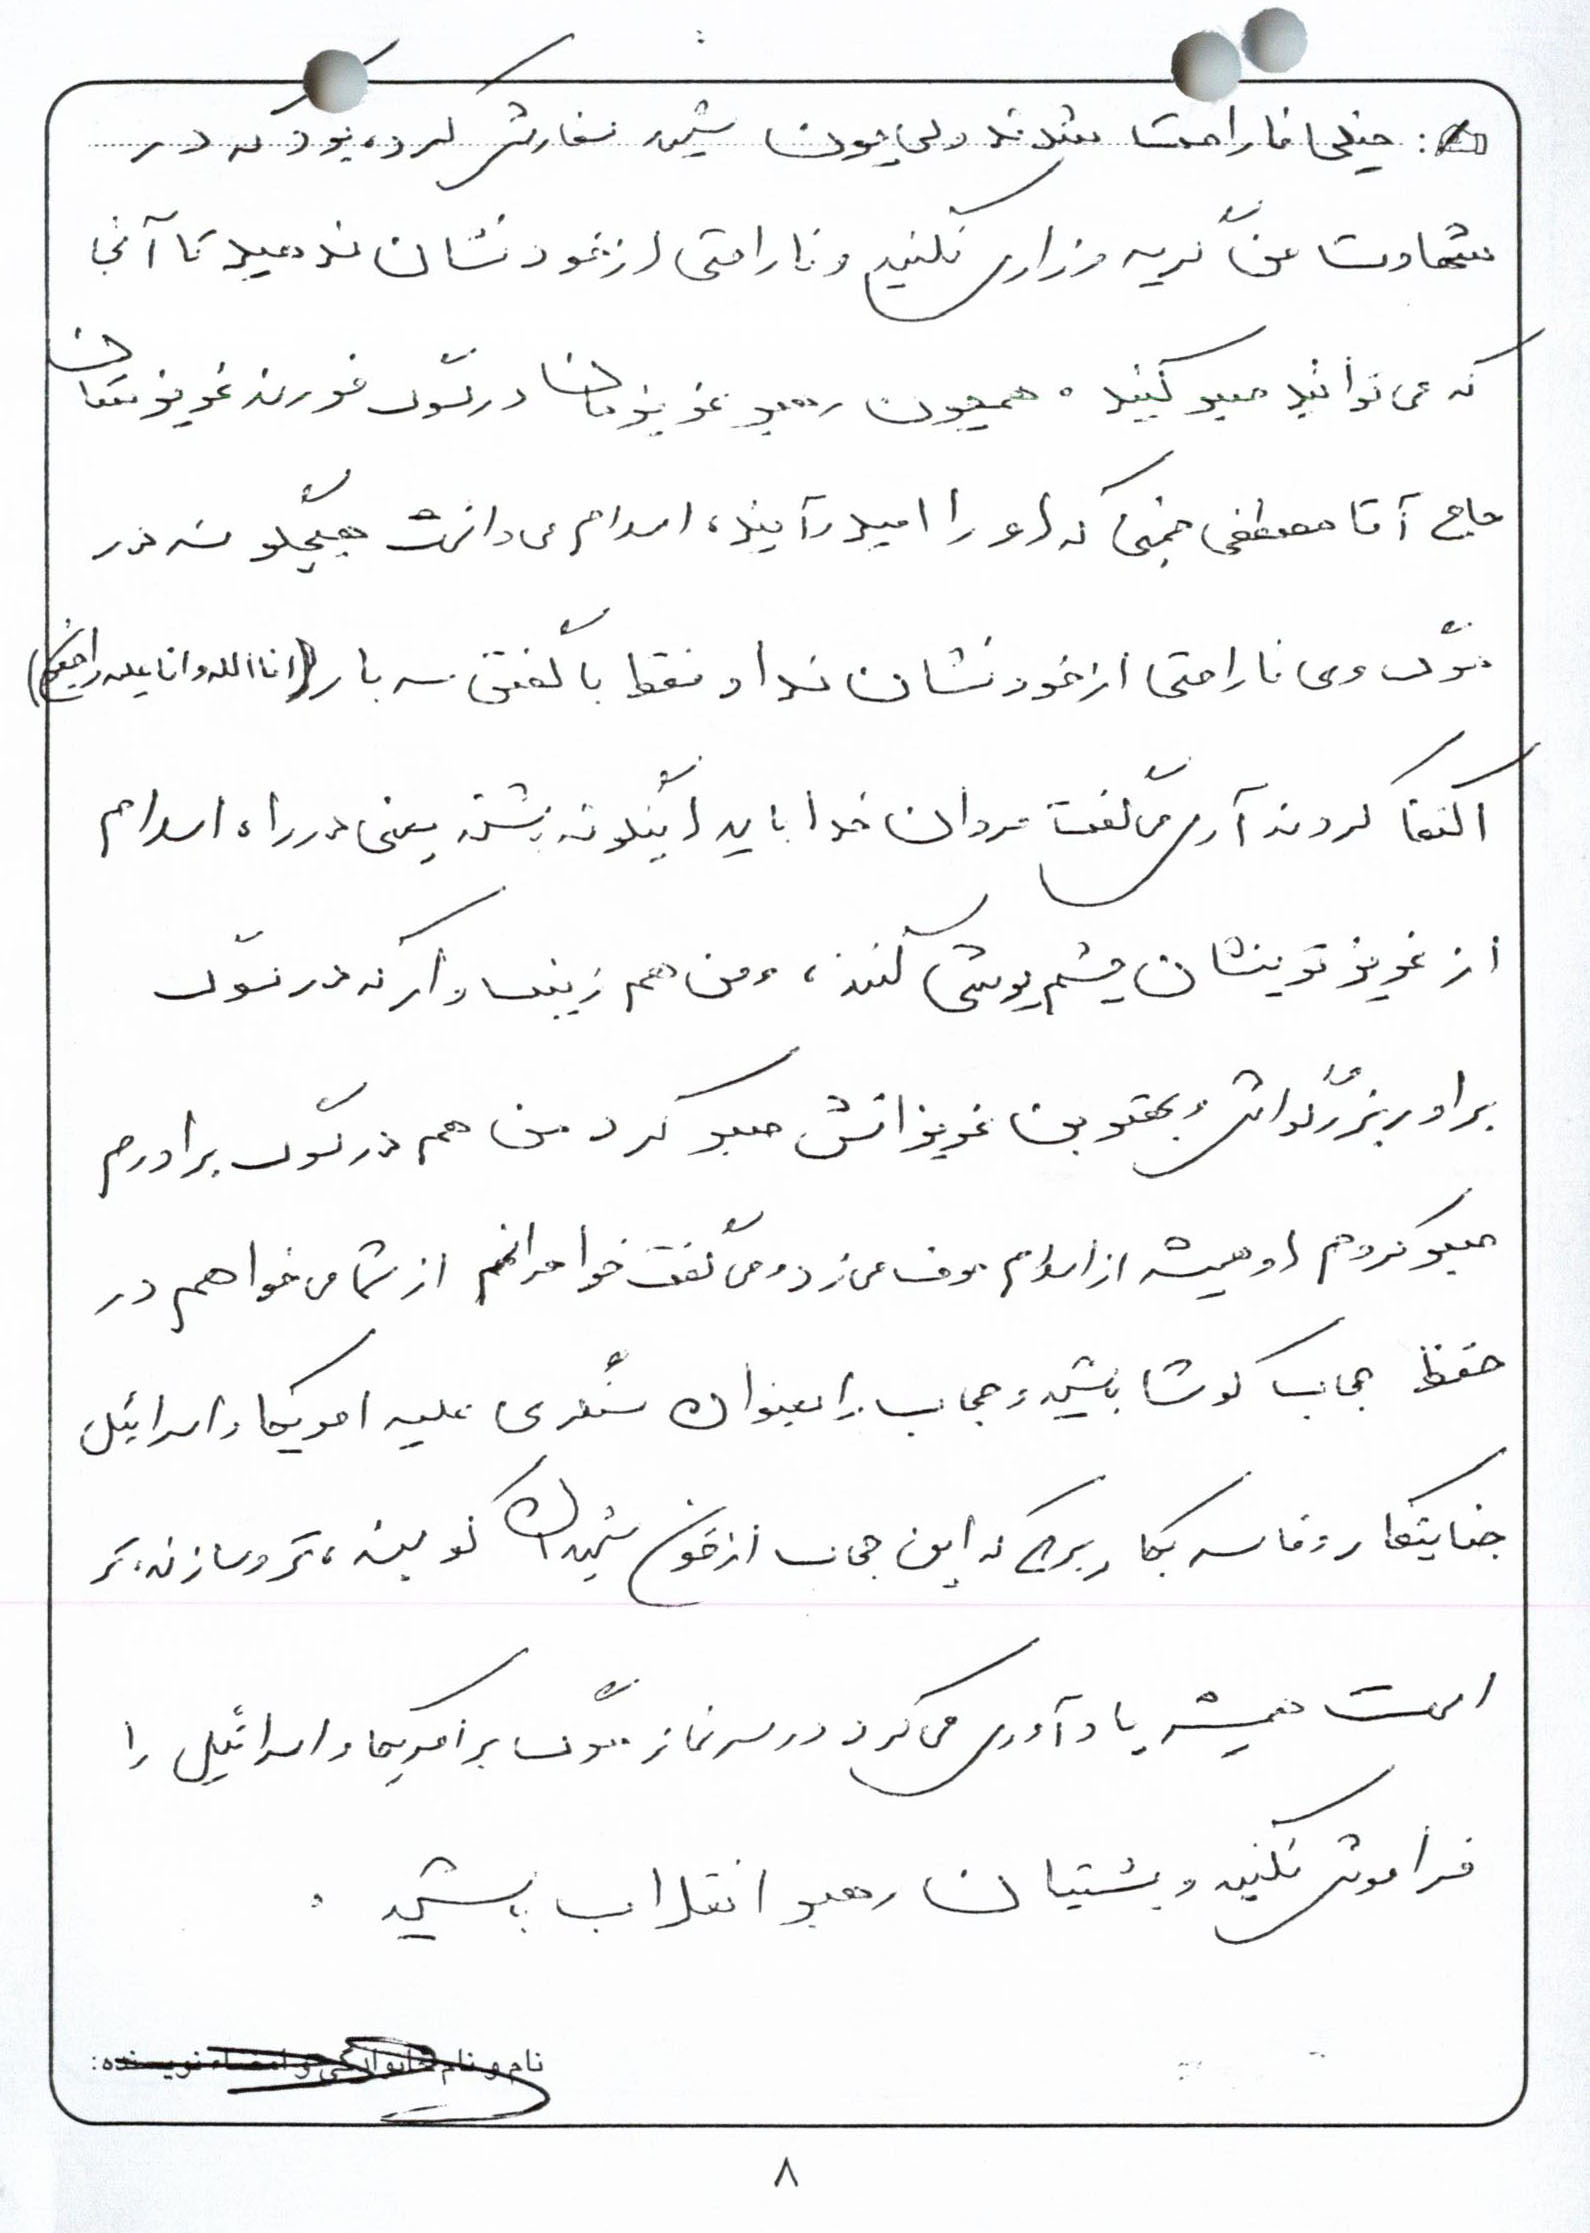 : خیلی ناراحت شدند ولی چون شهید سفارش کرده بود که در
شهادت من گریه و زاری نکنید و ناراحتی از خود نشان ندهید تا آنجا
که می توانید صبر کنید . همچون رهبر عزیزمان در سوگ فورند عزیزشان
حاج آقا مصطفی خمینی که او را امید آینده اسلام می دانست هیچگونه در
سوگ وی ناراحتی از خود نشان نداد فقط با گفتن سه بار (انا لله و انا الیه راجعون)
اکتفا کردند آری می گفت مردان خدا باید اینگونه باشند یعنی در راه اسلام
از عزیزترینشان چشم پوشی کنند ، و من هم زینب وار که در سوگ
برادر بزرگوارش و بهترین عزیزانش صبر کرد من هم در سوگ برادرم
صبر کردم او همیشه از اسلام حرف می زد و می گفت خواهرانم از شما می خواهم در
حفظ حجاب کوشا باشید و حجاب را بعنوان سنگری علیه امریکا و اسرائیل
جنایتکار و فاسد بکار برید که این حجاب از خون شهیدان کوبنده تر و سازنده تر
است همیشه یادآوری می کرد در سر نماز مرگ بر امریکا و اسرائیل را
فراموش نکنید و پشتیبان رهبر انقلاب باشید .
نام و نام خانوادگی و امضاء نویسنده:
۸